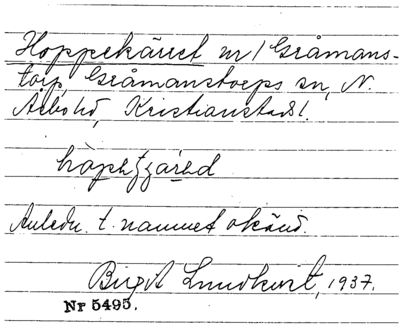 Hoppekärret nr 1 Gråmans-
torp, Gråmanstorps sn, N.
Åsbo hd, Kristianstads l.
Anledn. t. namnet okänd.
Birgit Lundkvist, 1937.
Nr 5495.